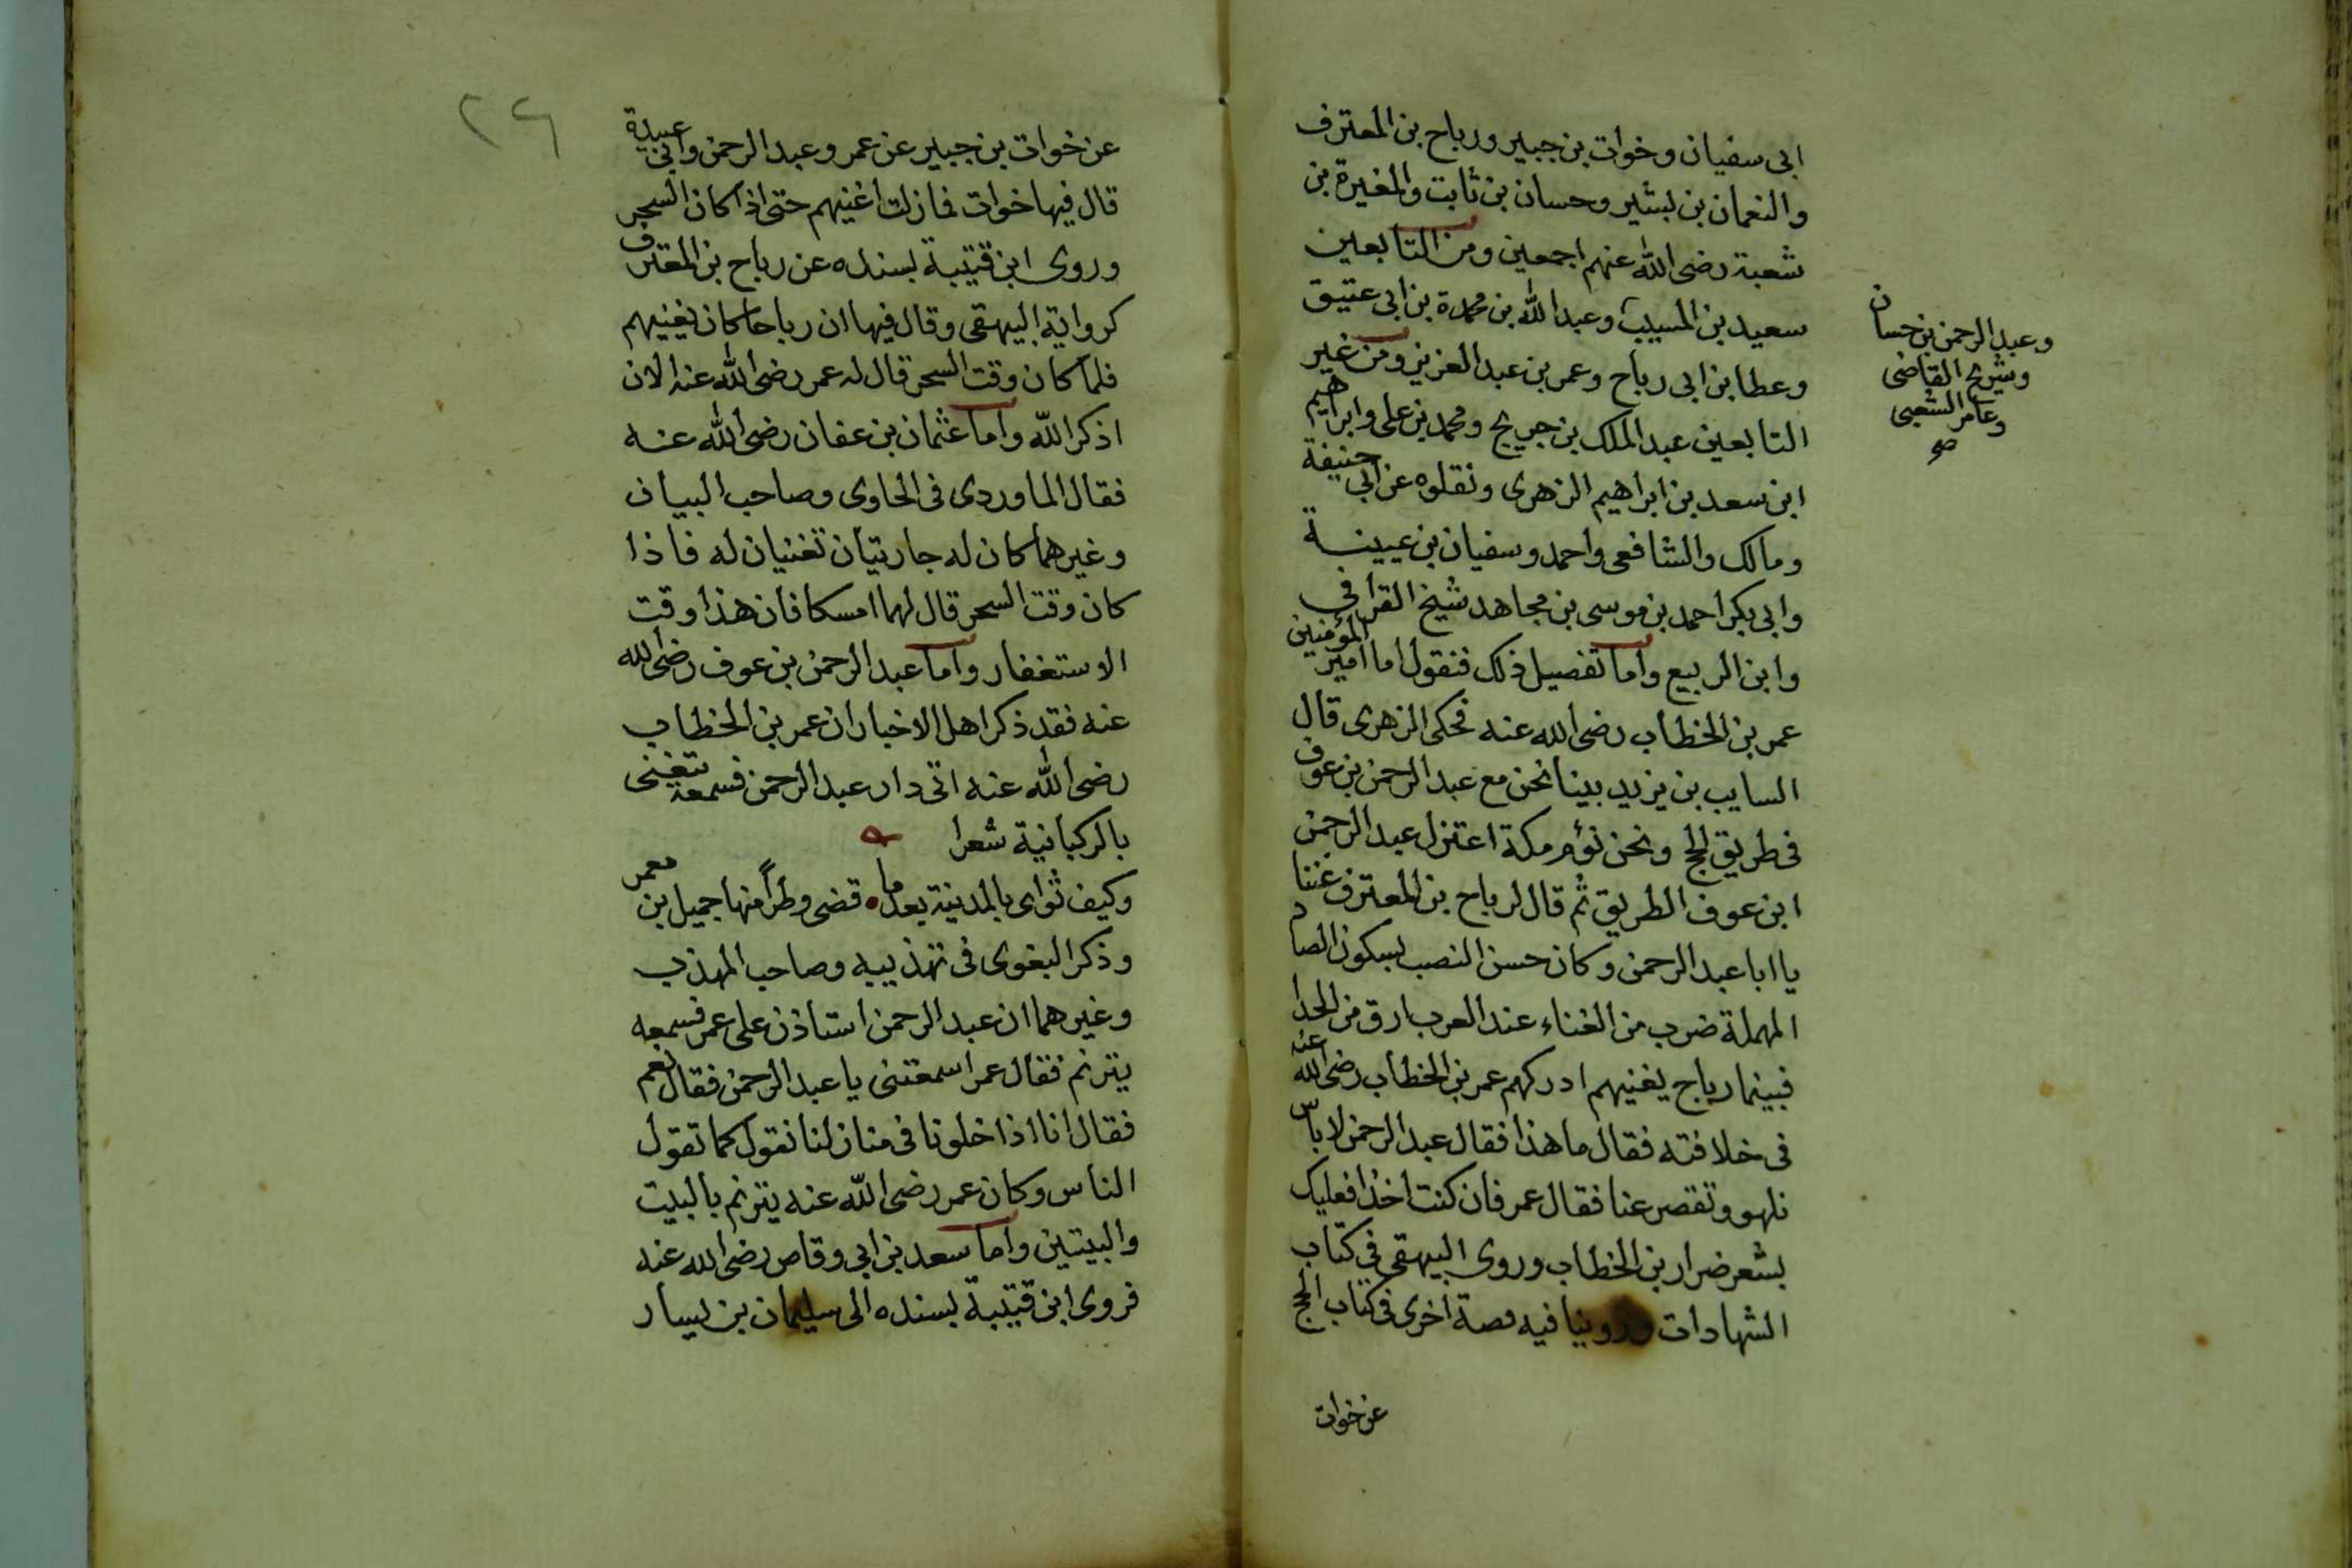 ابى سفيان وخوات بن جبير ورباح بن المعترف
والنعمان بن بشير وحسان بن ثابت والمغيرة بن
شعبة رضى الله عنهم اجمعين ومن التابعين
سعيد بن المسيب وعبد الله بن محمدة بن ابى عتيق
وعطا بن ابى رباح وعمر بن عبد العزيز ومن غير
التابعين عبد الملك بن جريج ومحمد بن على وابراهيم
ابن سعد بن ابراهيم الزهرى ونقلوه عن ابى حنيفة
ومالك والشافعى واحمد وسفيان بن عيينة
وابى بكر احمد بن موسى بن مجاهد شيخ القرا فى
وابن الربيع واما تفصيل ذلك فنقول اما امير المؤمنين
عمر بن الخطاب رضى الله عنه فحكى الزهرى قال
السايب بن يزيد بينا نحن مع عبد الرحمن بن عوف
فى طريق الحج ونحن نؤم مكة اعتزل عبد الرحمن
ابن عوف الطريق ثم قال لرباح بن المعترف غننا
يا ابا عبد الرحمن وكان حسن النصب بسكون الصاد
المهملة ضرب من الغناء عند العرب ارق من الحدا
فبينما رباح يغنيهم ادركهم عمر بن الخطاب رضى الله عنه
فى خلافته فقال ما هذا فقال عبد الرحمن لا باس
نلهو وتقصر عنا فقال عمر فان كنت اخذا فعليك
بشعر ضرار بن الخطاب وروى البيهقى فى كتاب
الشهادات وروينا فيه قصة اخرى فى كتاب الحج
عن خوات
وعبد الرحمن بن حسان
وشريح القاضى
وعامر الشعبى
صح
٢٦
عن خوات بن جبير عن عمر وعبد الرحمن وابى عبيدة
قال فيها خوات فما زلت اغنيهم حتى اذا كان السحر
وروى ابن قتيبة بسنده عن رباح بن المعترف
كرواية البيهقى وقال فيها ان رباحا كان يغنيهم
فلما كان وقت السحر قال له عمر رضى الله عنه الان
اذكر الله واما عثمان بن عفان رضى الله عنه
فقال الماوردى فى الحاوى وصاحب البيان
وغيرهما كان له جاريتان تغنيان له فاذا
كان وقت السحر قال لهما امسكا فان هذا وقت
الاستغفار واما عبد الرحمن بن عوف رضى الله
عنه فقد ذكر اهل الاخبار ان عمر بن الخطاب
رضى الله عنه اتى دار عبد الرحمن فسمعه يتغنى
بالركبانية شعرا
وكيف ثواى بالمدينة بعد ما قضى وطراً منها جميل بن معمر
وذكر البغوى فى تهذيبه وصاحب المهذب
وغيرهما ان عبد الرحمن استاذن على عمر فسمعه
يترنم فقال عمر اسمعتنى يا عبد الرحمن فقال نعم
فقال انا اذا خلونا فى منازلنا نقول كما تقول
الناس وكان عمر رضى الله عنه يترنم بالبيت
والبيتين واما سعد بن ابى وقاص رضى الله عنه
فروى ابن قتيبة بسنده الى سليمان بن يسار